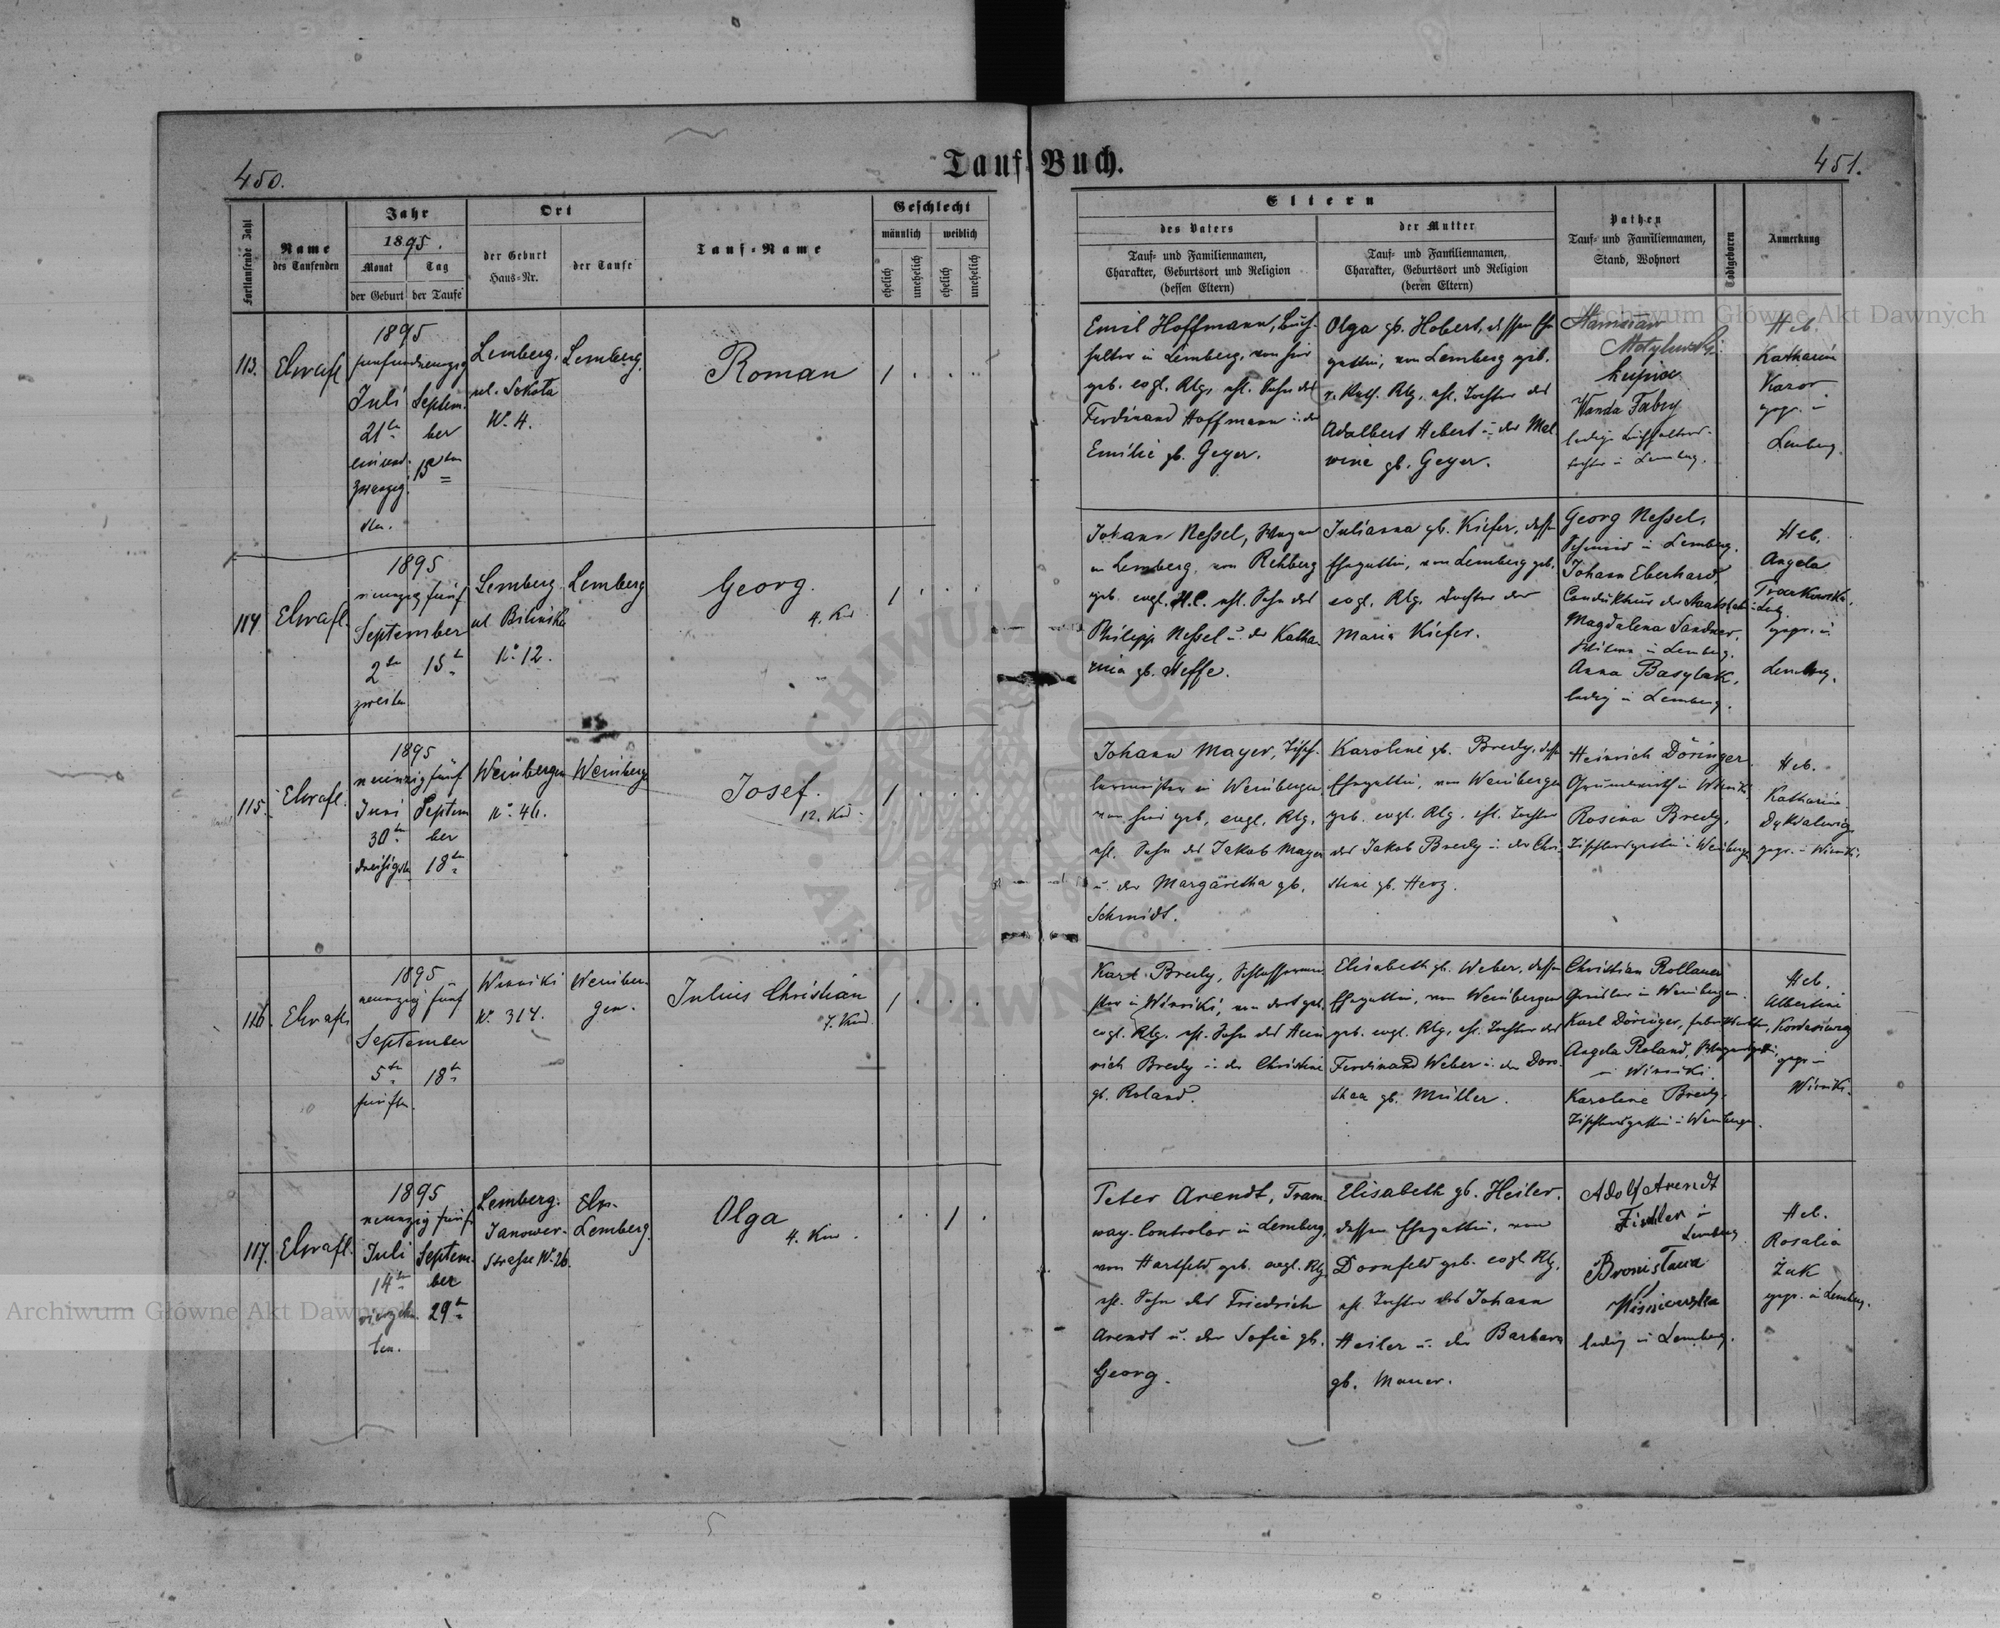 450.
Tauf-Buch.
451.
Fortlaufende Zahl
Name
des Taufenden
Jahr
1895.
Monat
Tag
der Geburt
der Taufe
Ort
der Geburt
Haus-Nr.
der Taufe
Tauf-Name
Geschlecht
männlich
weiblich
ehelich
unehelich
ehelich
unehelich
Eltern
des Vaters
Tauf- und Familiennamen,
Charakter, Geburtsort und Religion
(dessen Eltern)
der Mutter
Tauf- und Familiennamen,
Charakter, Geburtsort und Religion
(deren Eltern)
Pathen
Tauf- und Familiennamen,
Stand, Wohnort
Todtgeboren
Anmerkung
113.
1895
Juli
21
Septem-
ber
15
Lemberg,
ul. Sokoła
No. 4.
Lemberg.
Roman
1
Emil Hoffmann, Buch-
halter in Lemberg, von hier
geb. evgl. Rlg. ehl. Sohn des
Ferdinand Hoffmann u. der
Emilie gb. Geyer.
Olga gb. Hebert, dessen Ehe
gattin, von Lemberg geb.
r. kath. Rlg. ehl. Tochter des
Adalbert Hebert u. der Mal
wine gb. Geyer.
Stanisław
Wanda Fabry
in Lemberg.
Heb.
Katharina
gepr. in
Lemberg.
114
1895
neunzig fünf
September
2
zweiten
15
Lemberg
ul Bilinski
No 12.
Lemberg
Georg.
4. Kind
1
Johann Neßel, Wagner
in Lemberg, von Rehberg
geb. evgl. H.C. ehl. Sohn des
Philipp Neßel u. der Katha
rina gb. Steffe.
Julianna gb. Kiefer, dessen
Ehegattin, von Lemberg geb.
evgl. Rlg. Tochter der
Maria Kiefer.
Georg Neßel,
Schmied in Lemberg.
Johann Eberhard
Magdalena Sandner,
in Lemberg.
Anna Basylak,
ledig in Lemberg.
Heb.
Angela
gepr. in
Lemberg.
115.
1895
neunzig fünf
Juni
30
dreißigsten
Septem
ber
18
Weinbergen
No. 46.
Weinbergen
Josef.
12. Kind.
1
Johann Mayer, Tisch-
lermeister in Weinbergen,
von hier geb. evgl. Rlg.
ehl. Sohn des Jakob Mayer
u. der Margaretha gb.
Schmidt.
Karoline gb. Bredy, dessen
Ehegattin, von Weinbergen
geb. evgl. Rlg. ehl. Tochter
des Jakob Bredy u. der Chri-
stine gb. Herz.
Heinrich Döringer
Grundwirth in Winniki
Rosina Bredy,
Tischlersgattin in Weinbergen
Heb.
Katharina
gepr. in Winniki.
116.
1895
neunzig fünf
September
5
fünften
18
Winniki
No. 314.
Weinber-
gen.
Julius Christian
7. Kind
1
Karl Bredy, Schlossermei
ster in Winniki, von dort geb.
evgl. Rlg. ehl. Sohn des Hein
rich Bredy u. der Christine
gb. Roland.
Elisabeth gb. Weber, dessen
Ehegattin, von Weinbergen
geb. evgl. Rlg. ehl. Tochter des
Ferdinand Weber u. der Doro
thea gb. Müller.
Christian Rollauer
in Weinbergen.
Karl Döringer,
Angela Roland,
in Winniki.
Karoline Bredy,
Tischlersgattin in Weinbergen.
Heb.
Albertine
gepr. in
Winniki.
117.
1895
neunzig fünf
Juli
14
vierzehn
ten.
Septem-
ber
29
Lemberg.
Janower-
Straße No. 26.
Lemberg.
Olga
4. Kind.
1
Peter Arendt, Tram-
way-Controlor in Lemberg,
von Hartfeld geb. evgl. Rlg
ehl. Sohn des Friedrich
Arendt u. der Sofie gb.
Georg.
Elisabeth gb. Heiler,
dessen Ehegattin, von
Dornfeld geb. evgl. Rlg.
ehl. Tochter des Johann
Heiler u. der Barbara
gb. Mauer.
Adolf Arendt
Lemberg
Bronisława
Wiśniewska
ledig in Lemberg.
Heb.
Rosalia
Żuk
gepr. in Lemberg.
Archiwum Główne Akt Dawnych
Archiwum Główne Akt Dawnych
ARCHIWUM GŁÓWNE AKT DAWNYCH